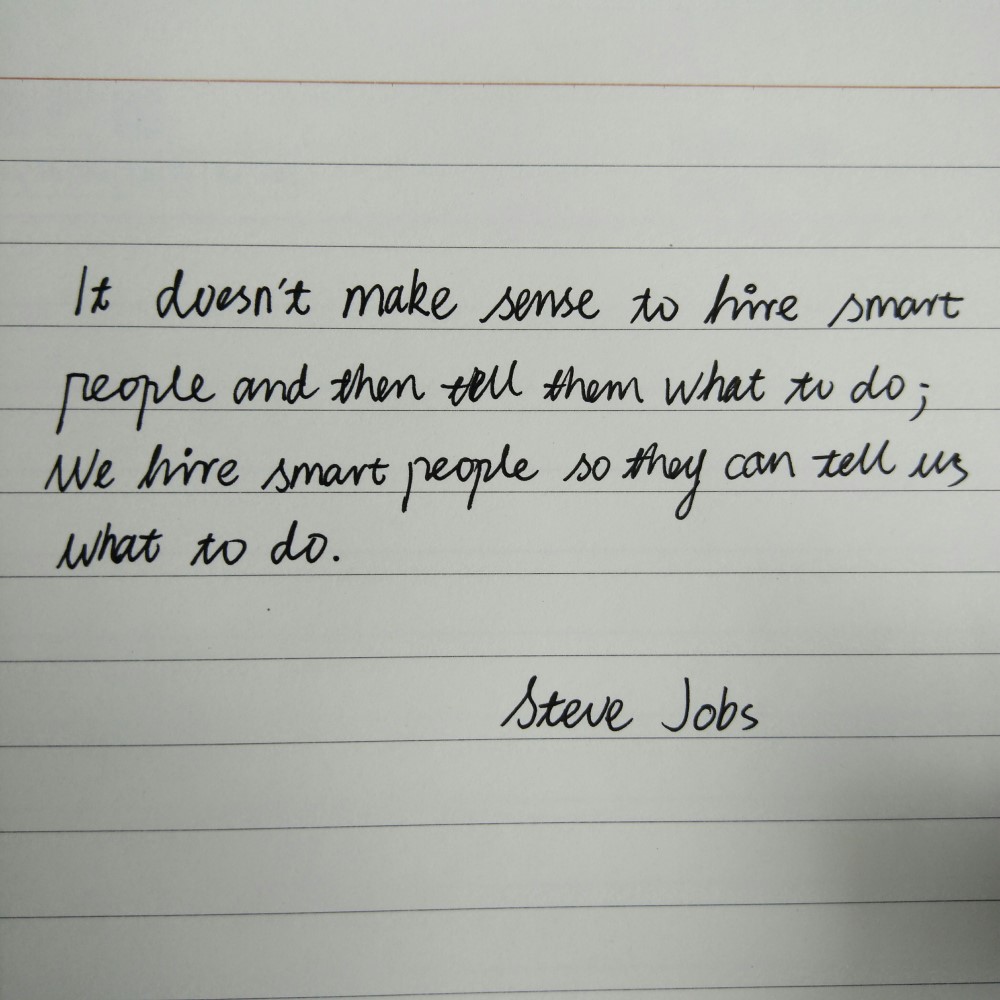 It doesn't make sense to hire smart
people and then tell them what to do;
We hire smart people so they can tell us
what to do.
Steve Jobs